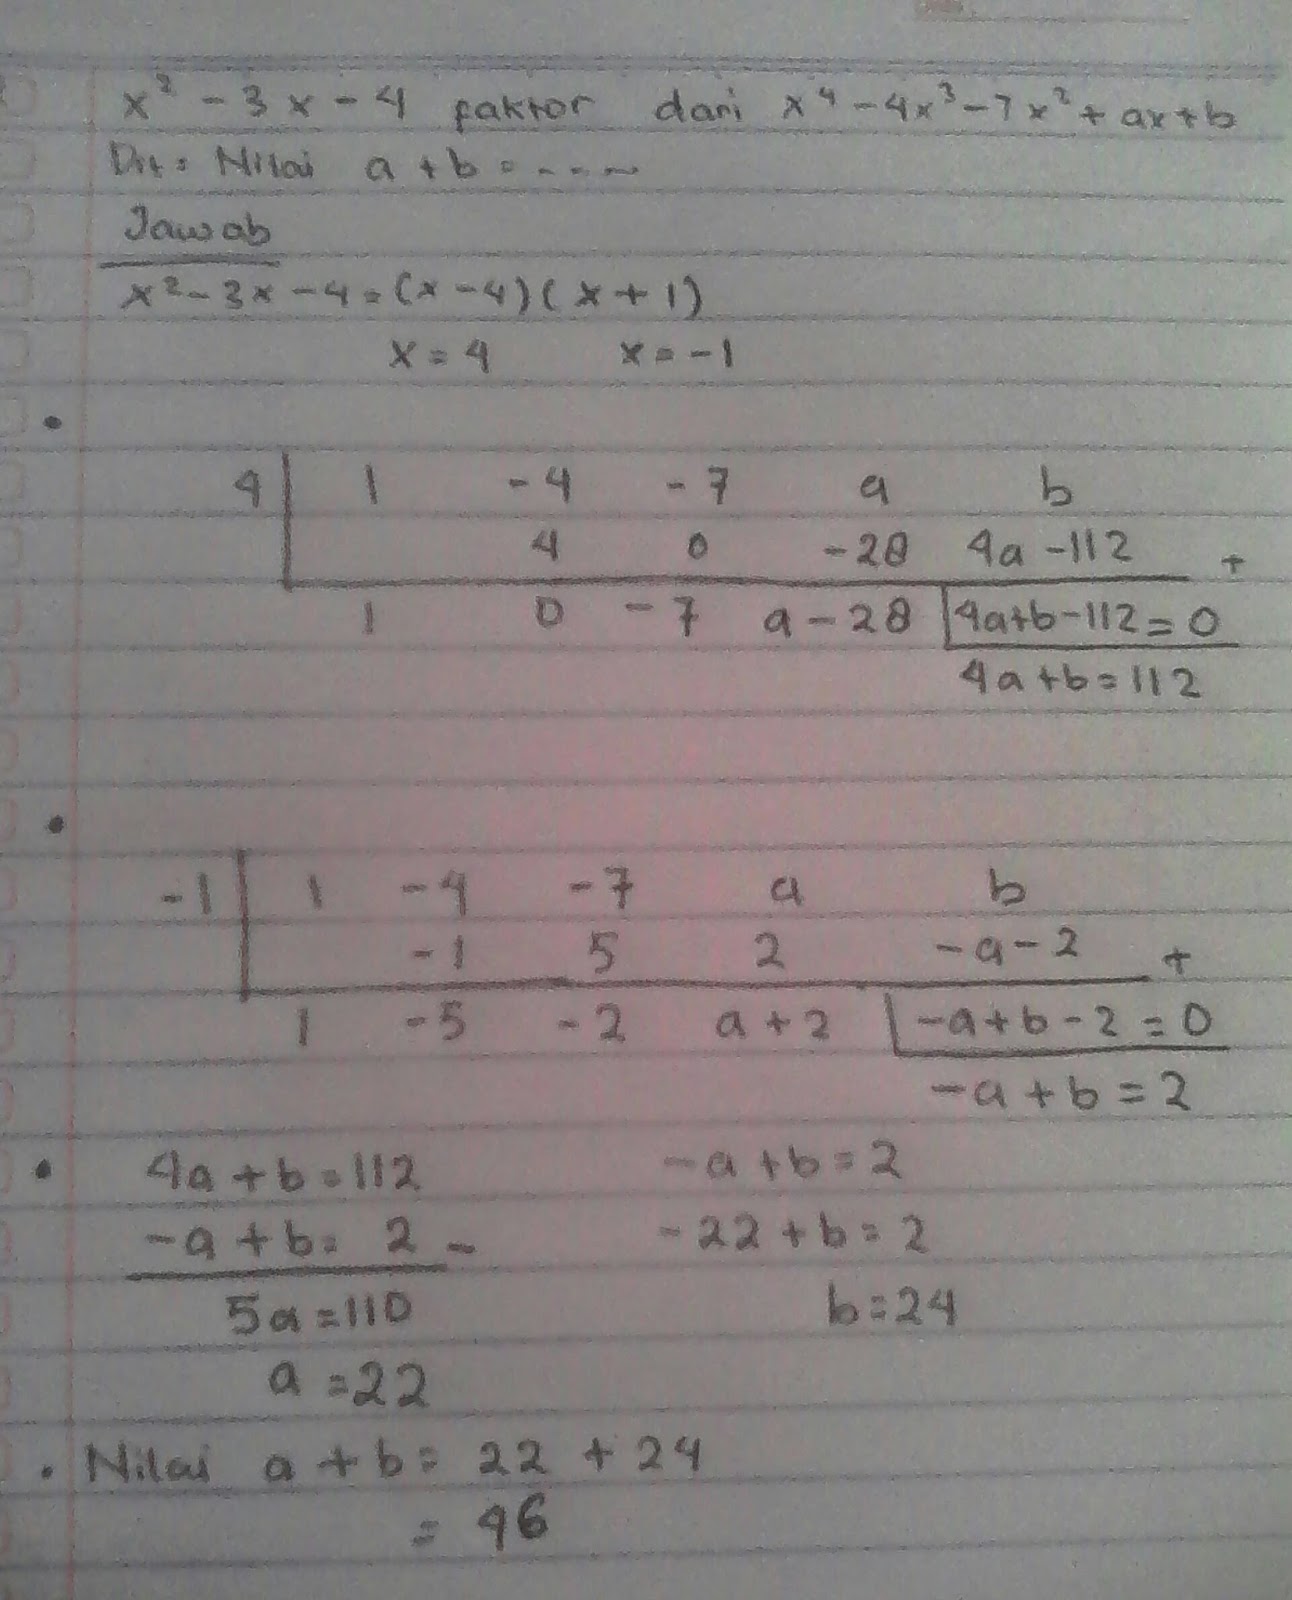 x² - 3x - 4 faktor dari x⁴ - 4x³ - 7x² + ax + b
Dit = Nilai a + b = ....
Jawab
x² - 3x - 4 = (x - 4) (x + 1)
x = 4 x = -1
4 | 1 -4 -7 a b
4 0 -28 4a - 112 +
1 0 -7 a - 28 | 4a+b-112 = 0
4a + b = 112
-1 | 1 -4 -7 a b
-1 5 2 -a - 2 +
1 -5 -2 a + 2 | -a + b - 2 = 0
-a + b = 2
4a + b = 112 -a + b = 2
-a + b = 2 - -22 + b = 2
5a = 110 b = 24
a = 22
• Nilai a + b = 22 + 24
= 46